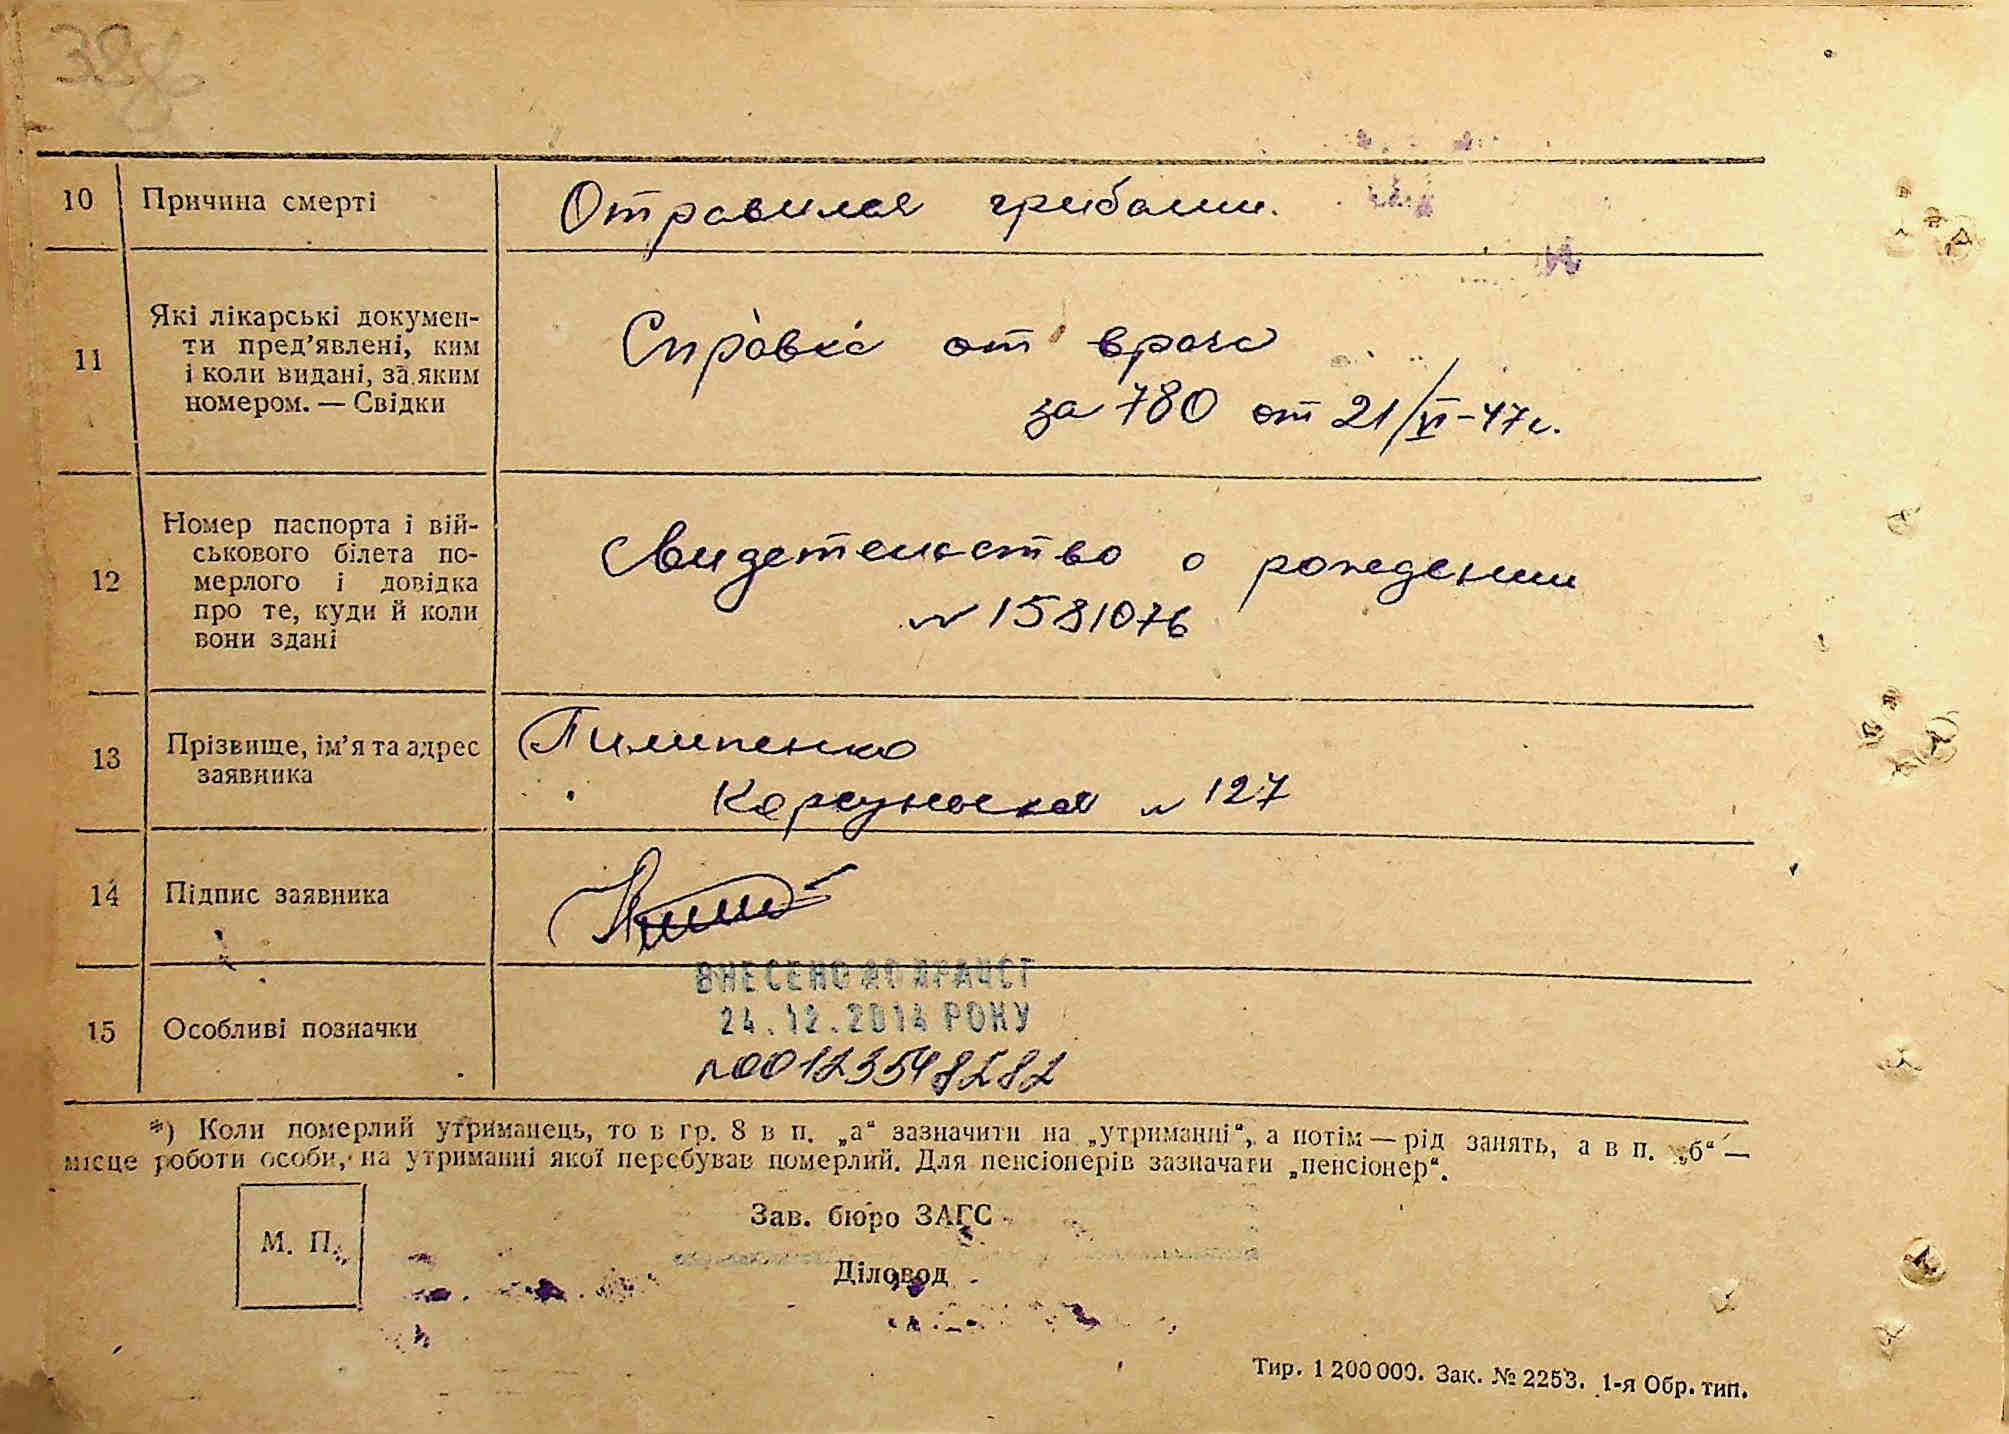 10 Причина смерті Отравилая грибами.
11 Які лікарські докумен-
ти пред’явлені, ким
і коли видані, за яким
номером. — Свідки
Справка от врача
за 780 от 21/VI-47г.
12 Номер паспорта і вій-
ськового білета по-
мерлого і довідка
про те, куди й коли
вони здані
Свидетельство о рождении
№ 1581076
13 Прізвище, ім’я та адрес
заявника
Пилипенко
Корсуньская № 127
14 Підпис заявника
15 Особливі позначки
ВНЕСЕНО ДО ДРАЦСГ
24.12.2014 РОКУ
№00123548282
*) Коли померлий утриманець, то в гр. 8 в п. „а“ зазначити на „утриманні“, а потім — рід занять, а в п. „б“ —
місце роботи особи, на утриманні якої перебував померлий. Для пенсіонерів зазначати „пенсіонер“.
М. П.
Зав. бюро ЗАГС
Діловод
Тир. 1 200 000. Зак. № 2253. 1-я Обр. тип.